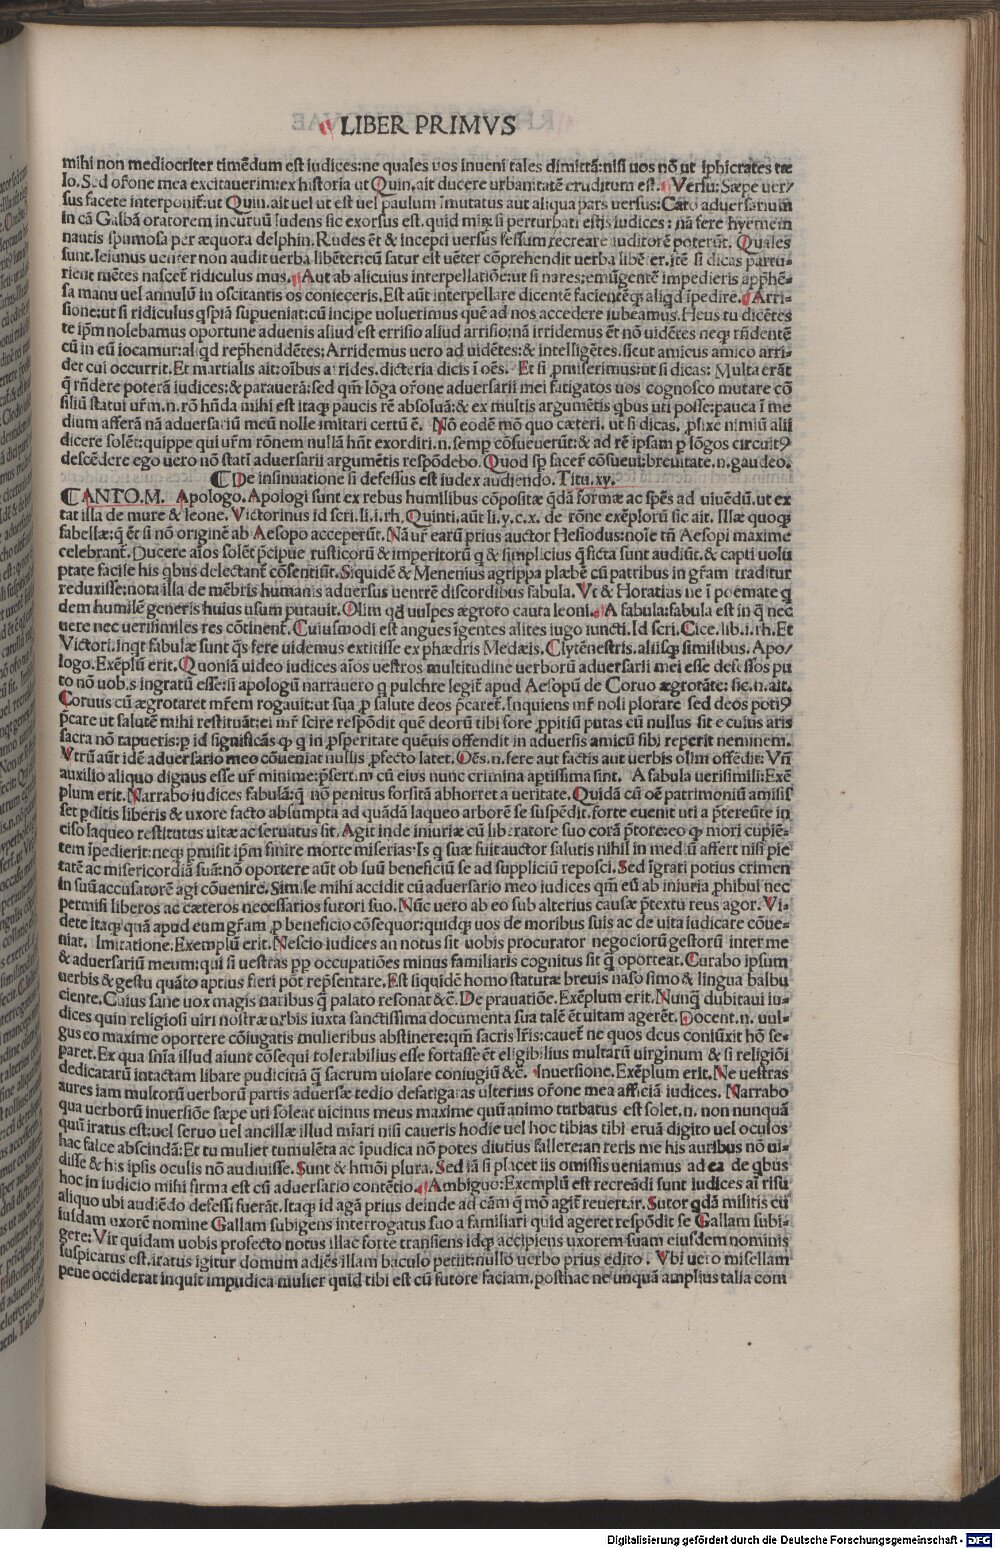 LIBER PRIMVS
mihi non mediocriter timẽdum est iudices:ne quales uos inueni tales dimittã:nisi uos nõ ut iphicrates tæ
lo. Sed orõne mea excitauerim:ex historia ut Quin.ait ducere urbanitatẽ eruditum est. Versu: Sæpe uer/
sus facete interponit:ut Quin.ait uel ut est uel paulum ĩmutatus aut aliqua pars uersus: Cato aduersarium
in cã Galbã oratorem incuruũ ludens sic exorsus est. quid si perturbati estis iudices: nã fere hyemem
nautis spumosa per æquora delphin. Rudes ẽt & incepti uersus fessum recreare auditorẽ poterũt. Quales
sunt. Ieiunus uenter non audit uerba libẽter:cũ satur est uẽter cõprehendit uerba libẽter.itẽ si dicas partu-
rient mõtes nascet ridiculus mus. Aut ab alicuius interpellatiõe:ut si nares:emũgentẽ impedieris apphẽ-
sa manu uel annulũ in oscitantis os conieceris. Est aũt interpellare dicentẽ facientẽq; aliqd ĩpedire. Arri-
sione:ut si ridiculus qspiã supueniat:cũ incipe uoluerimus quẽ ad nos accedere iubeamus. Heus tu dicẽtes
te ipm nolebamus oportune aduenis aliud est errisio aliud arrisio:nã irridemus ẽt nõ uidẽtes neq; rñdentẽ
cũ in eũ iocamur:aliqd rephenddẽtes: Arridemus uero ad uidẽtes:& intelligẽtes. sicut amicus amico arri-
det cui occurrit. Et martialis ait: oĩbus arrides. dicteria dicis ĩ oẽs. Et si pmiserimus:ut si dicas: Multa erãt
q rñdere poterã iudices:& parauerã: sed qm lõga orõne aduersarii mei fatigatos uos cognosco mutare cõ
siliũ statui urm.n.rõ hñda mihi est itaq; paucis rẽ absoluã:& ex multis argumẽtis qbus uti posse:pauca ĩ me
dium afferã nã aduersariũ meũ nolle imitari certũ ẽ. Nõ eodẽ mõ quo cæteri. ut si dicas. plixe nimiũ alii
dicere solẽt:quippe qui urm rõnem nullã hñt exordiri.n.semp cõsueuerũt:& ad rẽ ipsam p lõgos circuitꝰ
descẽdere ego uero nõ statĩ aduersarii argumẽtis respõdebo. Quod sp facer cõsueui:breuitate.n.gaudeo.
De insinuatione si defessus est iudex audiendo. Titu.xv.
CANTO.M. Apologo. Apologi sunt ex rebus humilibus cõpositæ qdã formæ ac spẽs ad uiuẽdũ.ut ex
tat illa de mure & leone. Victorinus id scri.li.i.rh. Quinti.aũt li.v.c.x. de rõne exẽplorũ sic ait. Illæ quoq;
fabellæ:q ẽt si nõ originẽ ab Aesopo acceperũt. Nã ur earũ prius auctor Hesiodus:noĩe tñ Aesopi maxime
celebrant. Ducere aĩos solẽt pcipue rusticorũ & imperitorũ q & simplicius q ficta sunt audiũt.& capti uolu
ptate facile his qbus delectant cõsentiũt. Siquidẽ & Menenius agrippa plæbẽ cũ patribus in grãm traditur
reduxisse:nota illa de mẽbris humanis aduersus uentrẽ discordibus fabula. Vt & Horatius ne ĩ poemate q
dem humilẽ generis huius usum putauit. Olim qd uulpes ægroto cauta leoni. A fabula:fabula est in q nec
uere nec uerisimiles res cõtinent. Cuiusmodi est angues ĩgentes alites iugo iuncti. Id scri. Cice.lib.i.rh. Et
Victori. inqt fabulæ sunt qs fere uidemus extitisse ex phædris Medæis. Clytẽnestris. aliisq; similibus. Apo/
logo. Exẽplũ erit. Quoniã uideo iudices aĩos uestros multitudine uerborũ aduersarii mei esse defessos pu
to nõ uobis ingratũ esse:si apologũ narrauero q pulchre legit apud Aesopũ de Coruo ægrotãte: sic.n.ait.
Coruus cũ ægrotaret mrem rogauit:ut sua p salute deos pcaret. Inquiens mr noli plorare sed deos potiꝰ
pcare ut salutẽ mihi restituãt:ei mr scire respõdit quẽ deorũ tibi fore ppitiũ putas cũ nullus sit e cuius aris
sacra nõ rapueris:p id significãs q q in psperitate quẽuis offendit in aduersis amicũ sibi reperit neminem.
Vtrũ aũt idẽ aduersario meo cõueniat nullis pfecto latet. Oẽs.n.fere aut factis aut uerbis olim offẽdit: Vñ
auxilio aliquo dignus esse ur minime:psert.m cũ eius nunc crimina aptissima sint. A fabula uerisimili:Exẽ
plum erit. Narrabo iudices fabulã:q nõ penitus forsitã abhorret a ueritate. Quidã cũ oẽ patrimoniũ amisis
set pditis liberis & uxore facto absumpta ad quãdã laqueo arborẽ se suspẽdit.forte euenit uti a ptereũte in
ciso laqueo restitutus uitæ ac seruatus sit. Agit inde iniuriæ cũ liberatore suo corã ptore:eo q mori cupiẽ-
tem ĩpedierit:neq; pmisit ipm finire morte miserias. Is q suæ fuit auctor salutis nihil in mediũ affert nisi pie
tatẽ ac misericordiã suã:nõ oportere aũt ob suũ beneficiũ se ad suppliciũ reposci. Sed ĩgrati potius crimen
in suũ accusatorẽ agi cõuenire. Simile mihi accidit cũ aduersario meo iudices qm eũ ab iniuria phibui nec
permisi liberos ac cæteros necessarios furori suo. Nũc uero ab eo sub alterius causæ ptextu reus agor. Vi-
dete itaq; quã apud eum grãm p beneficio cõsequor:quidq; uos de moribus suis ac de uita iudicare cõue-
niat. Imitatione. Exemplũ erit. Nescio iudices an notus sit uobis procurator negociorũ gestorũ inter me
& aduersariũ meum:qui si uestras pp occupatiões minus familiaris cognitus sit q oporteat. Curabo ipsum
uerbis & gestu quãto aptius fieri põt repsentare. Est siquidẽ homo staturæ breuis naso simo & lingua balbu
ciente. Cuius sane uox magis naribus q palato resonat &c. De prauatiõe. Exẽplum erit. Nunq dubitaui iu-
dices quin religiosi uiri nostræ urbis iuxta sanctissima documenta sua talẽ ẽt uitam agerẽt. Docent.n. uul-
gus eo maxime oportere cõiugatis mulieribus abstinere:qm sacris lris:cauet ne quos deus coniũxit hõ se-
paret. Ex qua snĩa illud aiunt cõsequi tolerabilius esse fortasse ẽt eligibilius multarũ uirginum & si religiõi
dedicatarũ intactam libare pudicitiã q sacrum uiolare coniugiũ &c. Inuersione. Exẽplum erit. Ne uestras
aures iam multorũ uerborũ partis aduersæ tedio defatigatas ulterius orõne mea afficiã iudices. Narrabo
qua uerborũ inuersiõe sæpe uti soleat uicinus meus maxime quũ animo turbatus est solet.n. non nunquã
quũ iratus est:uel seruo uel ancillæ illud mĩari nisi caueris hodie uel hoc tibias tibi eruã digito uel oculos
hac falce abscindã:Et tu mulier tumulẽta ac ĩpudica nõ potes diutius fallere:an teris me his auribus nõ ui-
disse & his ipsis oculis nõ audiuisse. Sunt & hmõi plura. Sed iã si placet iis omissis ueniamus ad ea de qbus
hoc in iudicio mihi firma est cũ aduersario contẽtio. Ambiguo:Exemplũ est recreãdi sunt iudices aĩ risu
aliquo ubi audiẽdo defessi fuerãt. Itaq; id agã prius deinde ad cãm q mõ agit reuertar. Sutor qdã militis cu
iusdam uxorẽ nomine Gallam subigens interrogatus suo a familiari quid ageret respõdit se Gallam subi-
gere: Vir quidam uobis profecto notus illac forte transiens idq; accipiens uxorem suam eiusdem nominis
suspicatus est.iratus igitur domum adiẽs illam baculo petiit:nullo uerbo prius edito. Vbi uero misellam
pene occiderat inquit impudica mulier quid tibi est cũ sutore faciam.posthac ne unquã amplius talia com
Digitalisierung gefördert durch die Deutsche Forschungsgemeinschaft - DFG